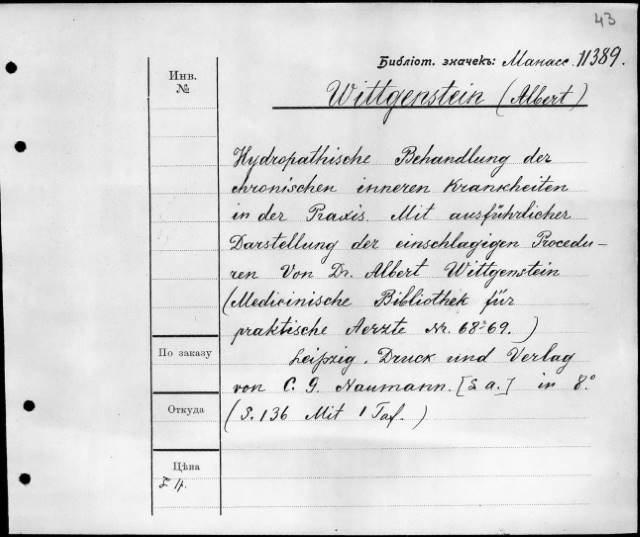 43
Библіот. значекъ: Манасс. 11389.
Инв. №
Wittgenstein (Albert)
Hydropathische Behandlung der
chronischen inneren Krankheiten
in der Praxis. Mit ausführlicher
Darstellung der einschlagigen Procedu-
ren Von Dr. Albert Wittgenstein
(Medicinische Bibliothek für
praktische Aerzte Nr. 68-69.)
По заказу
Leipzig. Druck und Verlag
von C. G. Naumann. [s a.] in 8.°
Откуда
(S. 136 Mit 1 Taf.)
Цѣна